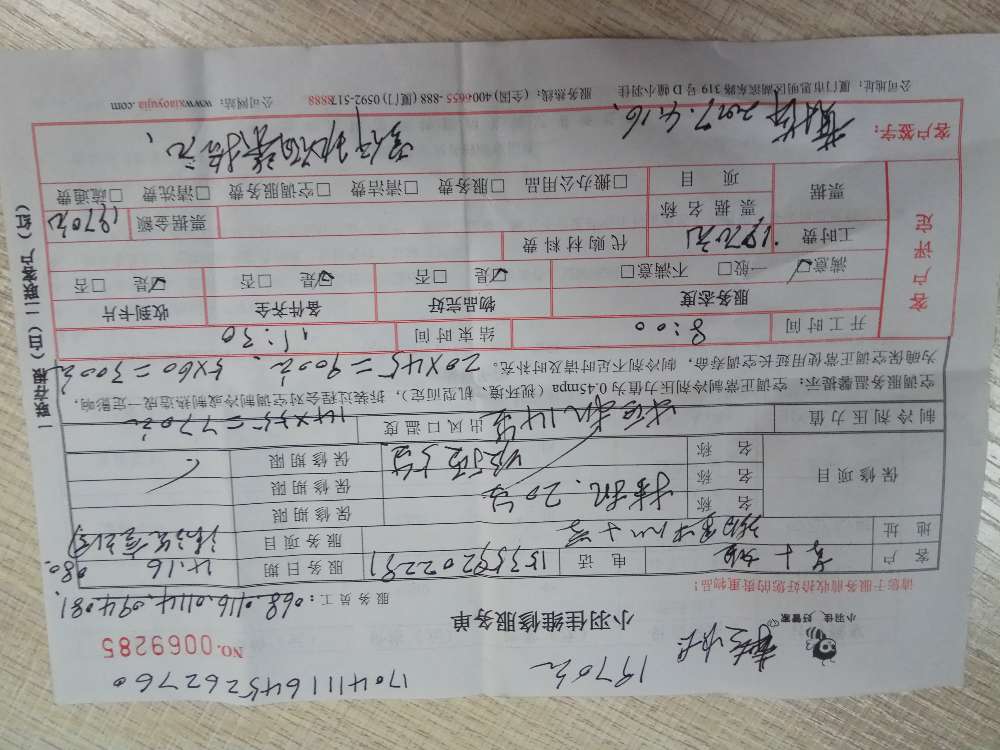 1704111645262760
1970元
小羽佳_好管家
小羽佳维修服务单
NO. 0069285
请您于服务前收拾好您的贵重物品!
服务员工: 068.0116.0114.094.081.
080.
客户 电话 15359202291 服务日期 4.16
地址 服务项目
保修项目 名称 挂机.20台 保修期限
名称 保修期限
名称 保修期限
制冷剂压力值 出风口温度 14×55=770元
空调服务温馨提示:空调正常制冷剂压力值为0.45mpa(视环境、机型而定),拆装过程会对空调制冷或制热造成一定影响,
为确保空调正常使用延长空调寿命,制冷剂不足时请及时补充。
20×45=900元. 5×60=300元
开工时间 8:00 结束时间 11:30
客户评定
服务态度 物品完好 备件齐全 收到卡片
满意□ 一般□ 不满意□ 是□ 否□ 是□ 否□ 是□ 否□
工时费 1970元 代购材料费
票据 票据名称 票据金额 1970元
项目 □搬办公用品 □服务费 □清洁费 □空调服务费 □清洗费 □疏通费
客户签字: 2017.4.16.
公司地址:厦门市思明区湖滨东路319号D幢小羽佳 服务热线:(全国)400-6655-888 (厦门)0592-5178888 公司网站:www.xiaoyujia.com
一联存根(白)二联客户(红)